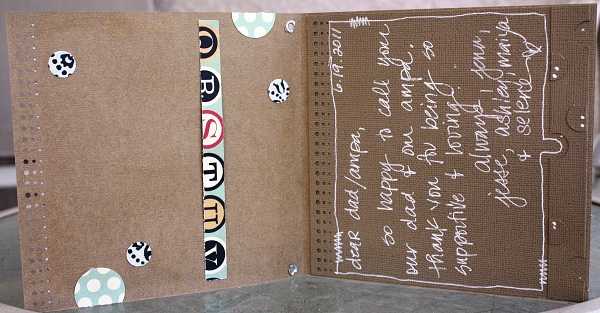 Q
R
S
T
U
V
6.19.2011
dear dad/ampa,
so happy to call you
our dad & our ampa.
thank you for being so
supportive & loving!
always, jenn,
jesse, ashley, maiya
& selene